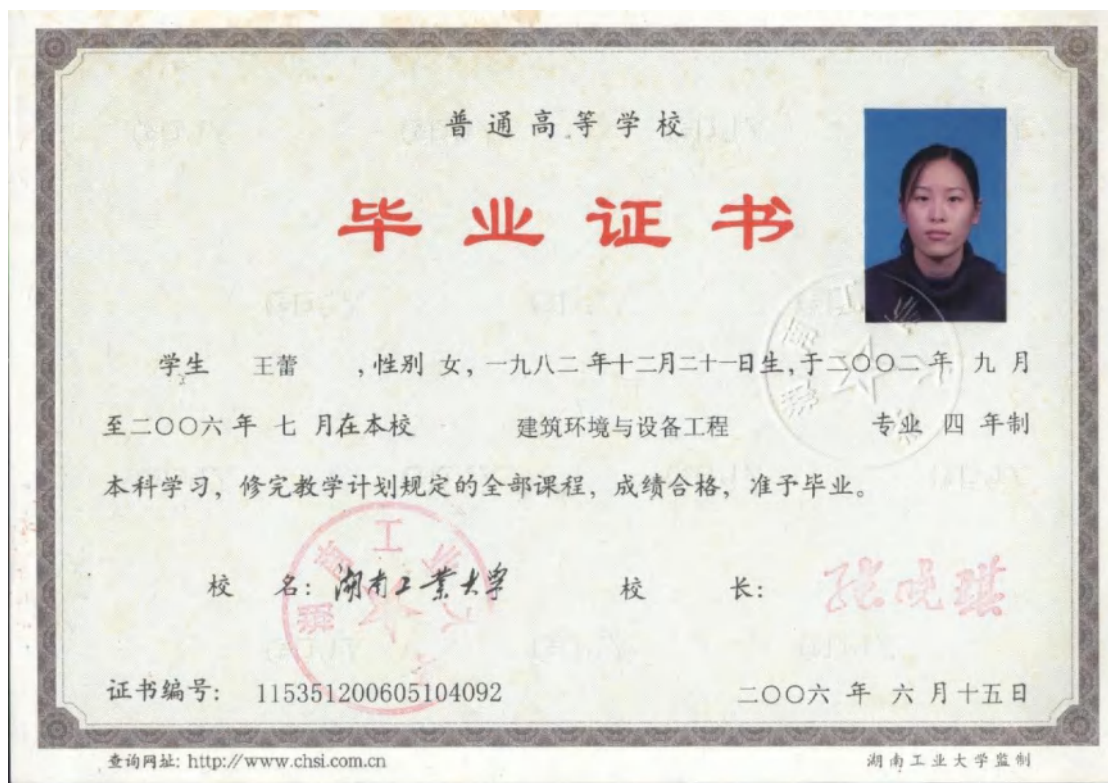 普通高等学校
毕业证书
学生 王蕾 ,性别 女,一九八二年十二月二十一日生,于二〇〇二年 九 月
至二〇〇六年 七 月在本校 建筑环境与设备工程 专业 四 年制
本科学习,修完教学计划规定的全部课程,成绩合格,准予毕业。
校 名: 湖南工業大学 校 长: 张晓琪
证书编号: 115351200605104092 二〇〇六 年 六 月十五日
查询网址: http://www.chsi.com.cn 湖南工业大学监制